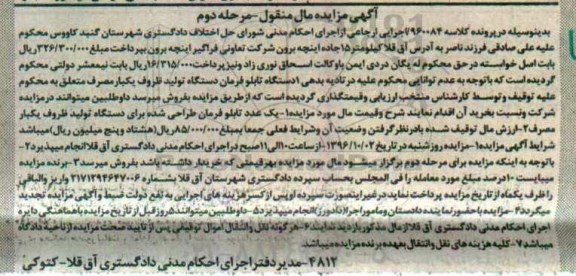 آگهی مزایده مال منقول - مرحله دوم
بدینوسیله در پرونده کلاسه ۹۶۰۰۸۴ /اجرایی ارجاعی از اجرای احکام مدنی شورای حل اختلاف دادگستری شهرستان گنبد کاووس محکوم
علیه علی صادقی فرزند ناصر به آدرس آق قلا کیلومتر ۱۵ جاده اینچه برون شرکت تعاونی فراگیر اینچه برون بپرداخت مبلغ ۳۲۶/۳۰۰/۰۰۰ ریال
بابت اصل خواسته در حق محکوم له یگان دردی ایمن با وکالت اسحاق نوری زاد و نیز پرداخت ۱۶/۳۱۵/۰۰۰ ریال بابت نیمعشر دولتی محکوم
گردیده است که باتوجه به عدم توانایی محکوم علیه در تادیه بدهی ۱ دستگاه تابلو فرمان دستگاه تولید ظروف یکبار مصرف متعلق به محکوم
علیه توقیف و توسط کارشناس منتصب ارزیابی و قیمتگذاری گردیده است که از طریق مزایده بفروش میرسد داوطلبین میتوانند در مزایده
شرکت و نسبت بخرید آن اقدام نمایند شرح و قیمت مال مورد مزایده ۱- یک عدد تابلو فرمان طراحی شده برای دستگاه تولید ظروف یکبار
مصرف ۲- ارزش مال توقیف شده بادر نظر گرفتن وضعیت آن و شرایط فعلی جمعا بمبلغ ۸۵/۰۰۰/۰۰۰ ریال (هشتاد و پنج میلیون ریال) میباشد
شرایط آگهی مزایده ۱- مزایده روز شنبه در تاریخ ۱۳۹۶/۱۰/۰۲ از ساعت ۱۰ الی ۱۱ صبح در اجرای احکام مدنی دادگستری آق قلا انجام میپذیرد ۲-
باتوجه به اینکه مزایده برای مرحله دوم برگزار میشود مال مورد مزایده بهر قیمتی که خریدار داشته باشد بفروش میرسد ۳- برنده مزایده
میبایست ۱۰ درصد مبلغ مورد معامله را فی المجلس بحساب سپرده دادگستری شهرستان آق قلا بشماره ۲۱۷۱۲۹۴۶۴۷۰۰۶ واریز و الباقی
را ظرف یکماه از تاریخ مزایده پرداخت نماید در غیر اینصورت سپرده او پس از کسر هزینه های اجرایی به نفع دولت ضبط و آگهی مزایده تجدید
میگردد ۴- مزایده با حضور نماینده دادستان و مامور اجرا (دادورز) انجام میپذیرد ۵- داوطلبین میتوانند ۵ روز قبل از تاریخ مزایده با هماهنگی دایره
اجرای احکام مدنی دادگستری آق قلا از مال مذکور بازدید نمایند ۶- هر گونه نقل و انتقال اموال توقیفی پس از تایید صحت مزایده از ناحیه دادگاه
میباشد ۷- کلیه هزینه های نقل و انتقال بعهده برنده مزایده میباشد.
۴۸۱۲- مدیر دفتر اجرای احکام مدنی دادگستری آق قلا - کتوکی